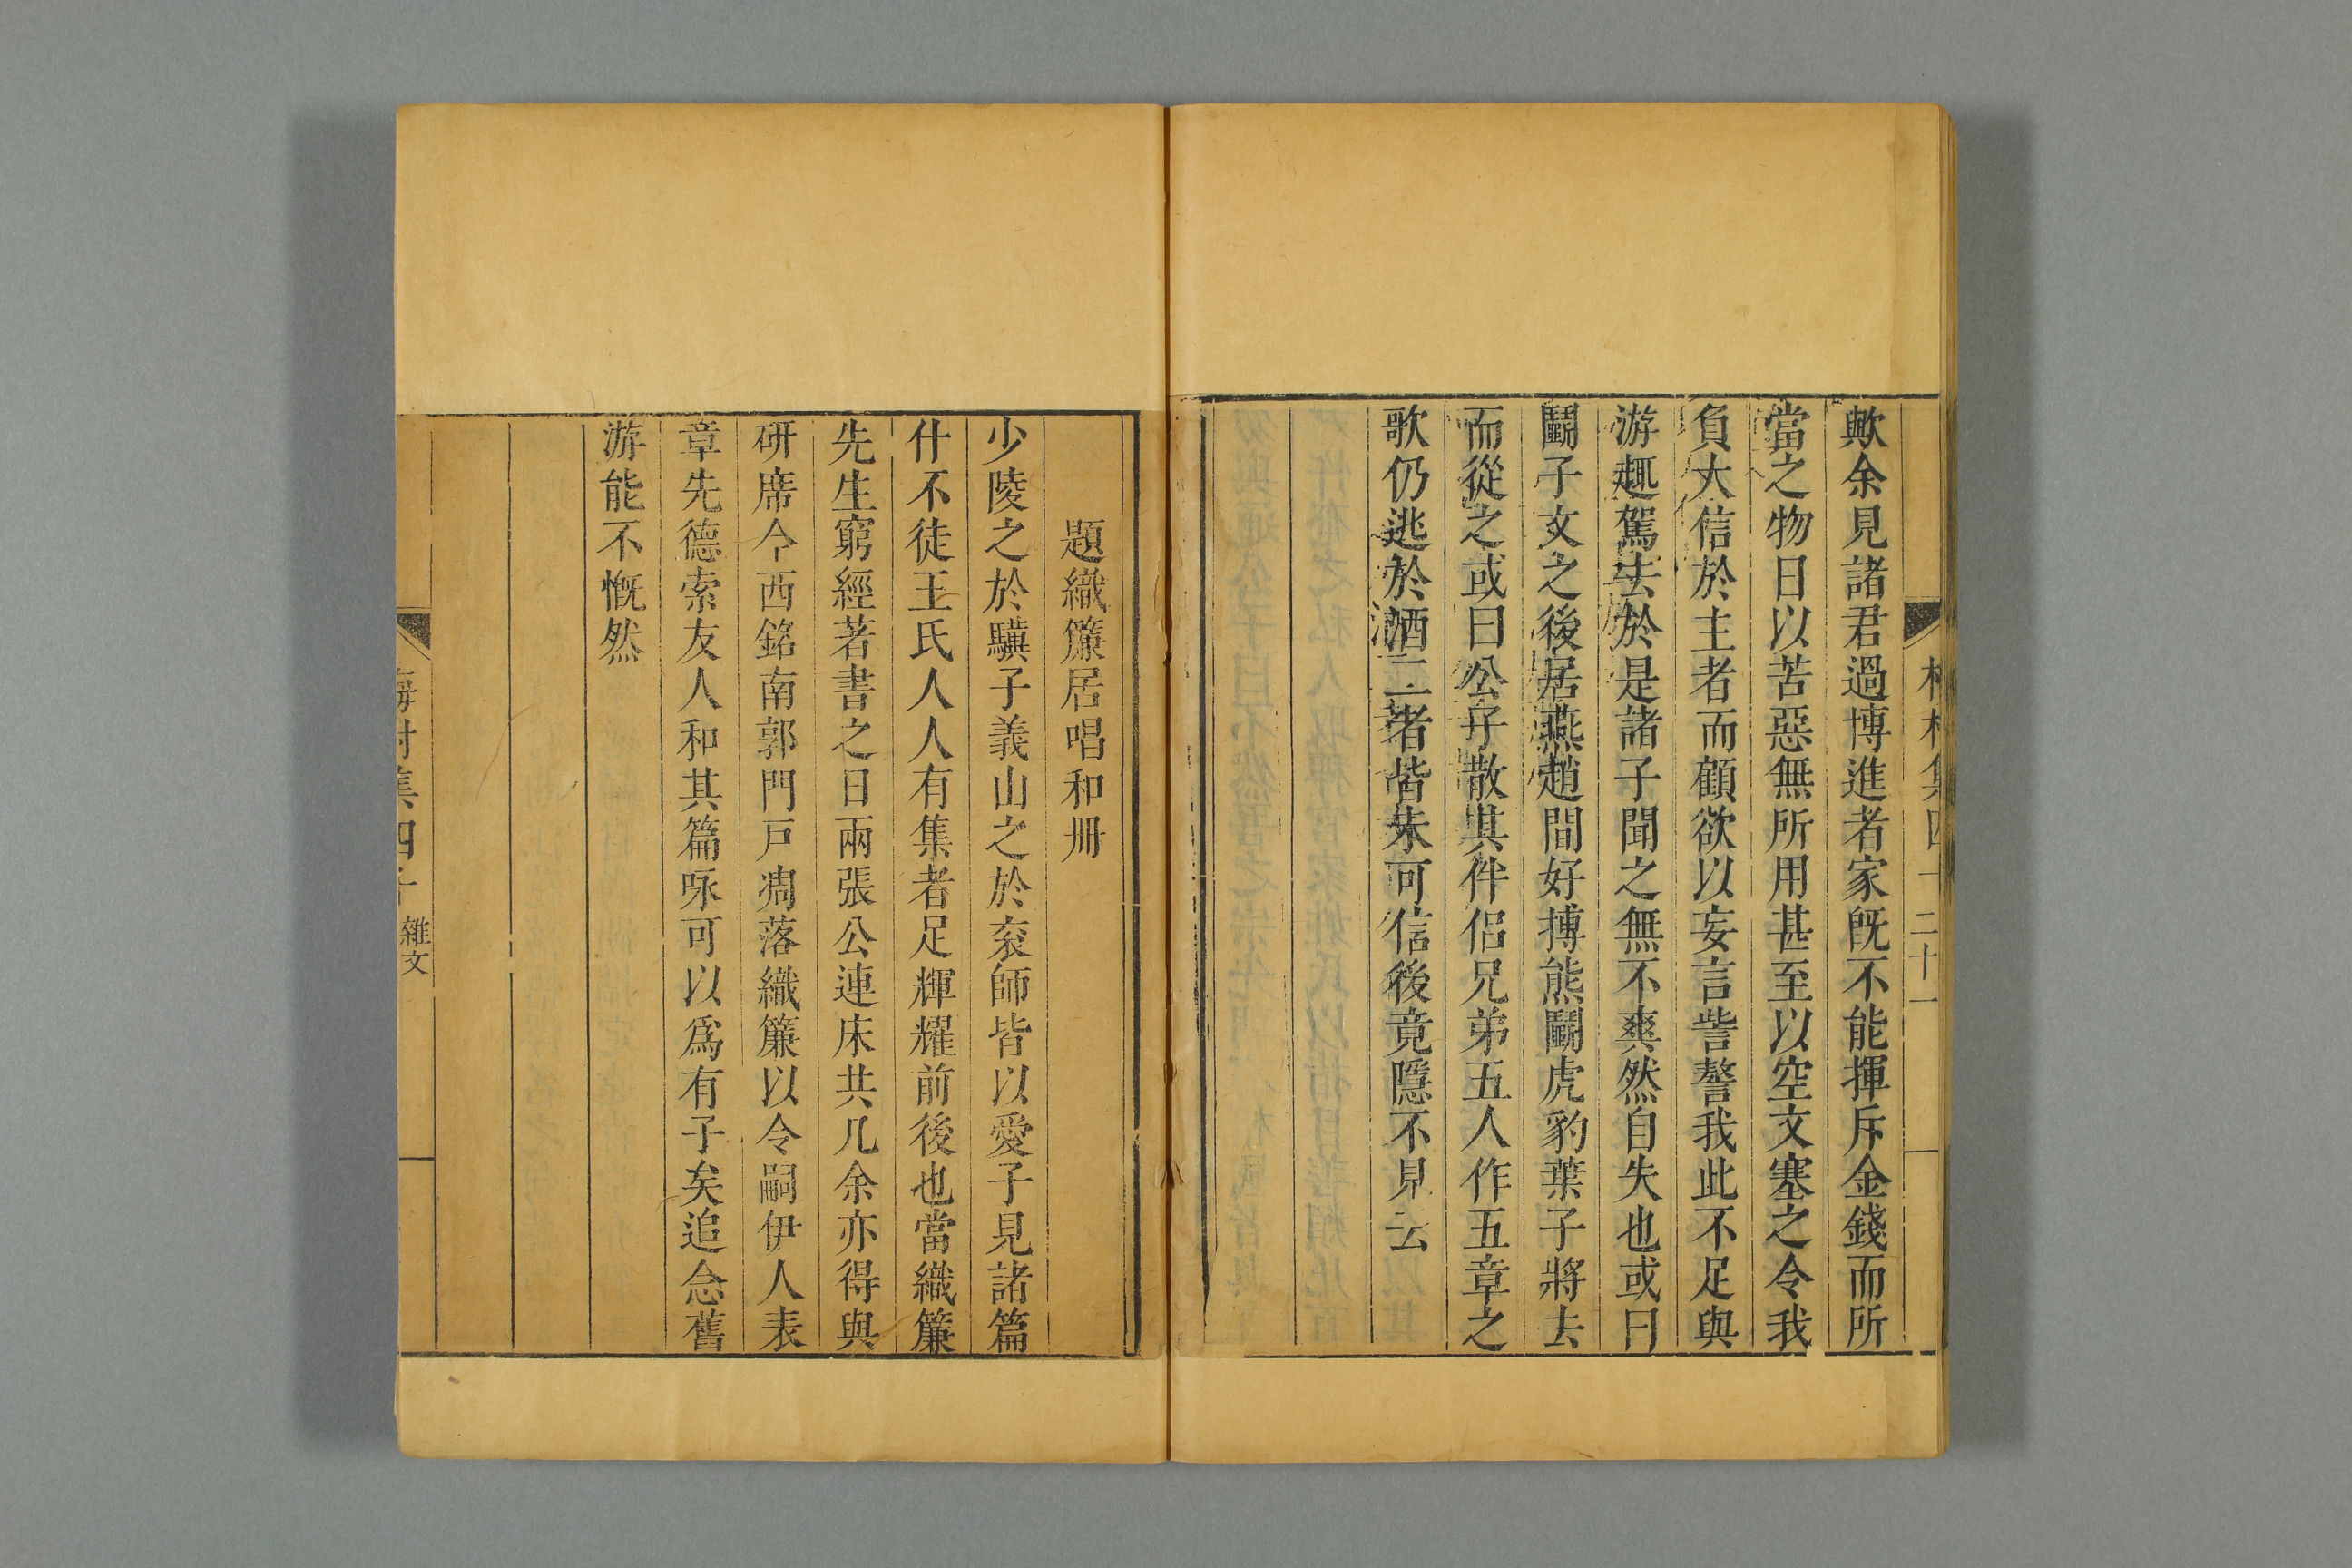 歟余見諸君過博進者家既不能揮斥金錢而所
當之物日以苦惡無所用甚至以空文塞之令我
負大信於主者而顧欲以妄言訾謷我此不足與
游趣駕去於是諸子聞之無不爽然自失也或曰
鬭子文之後居燕趙間好搏熊鬭虎豹葉子將去
而從之或曰公子散其伴侶兄弟五人作五章之
歌仍逃於酒二者皆未可信後竟隱不見云
二十一
題織簾居唱和冊
少陵之於驥子義山之於衮師皆以愛子見諸篇
什不徒王氏人人有集者足輝耀前後也當織簾
先生窮經著書之日兩張公連床共几余亦得與
研席今西銘南郭門戸凋落織簾以令嗣伊人表
章先德索友人和其篇咏可以爲有子矣追念舊
游能不慨然
集四
雜文